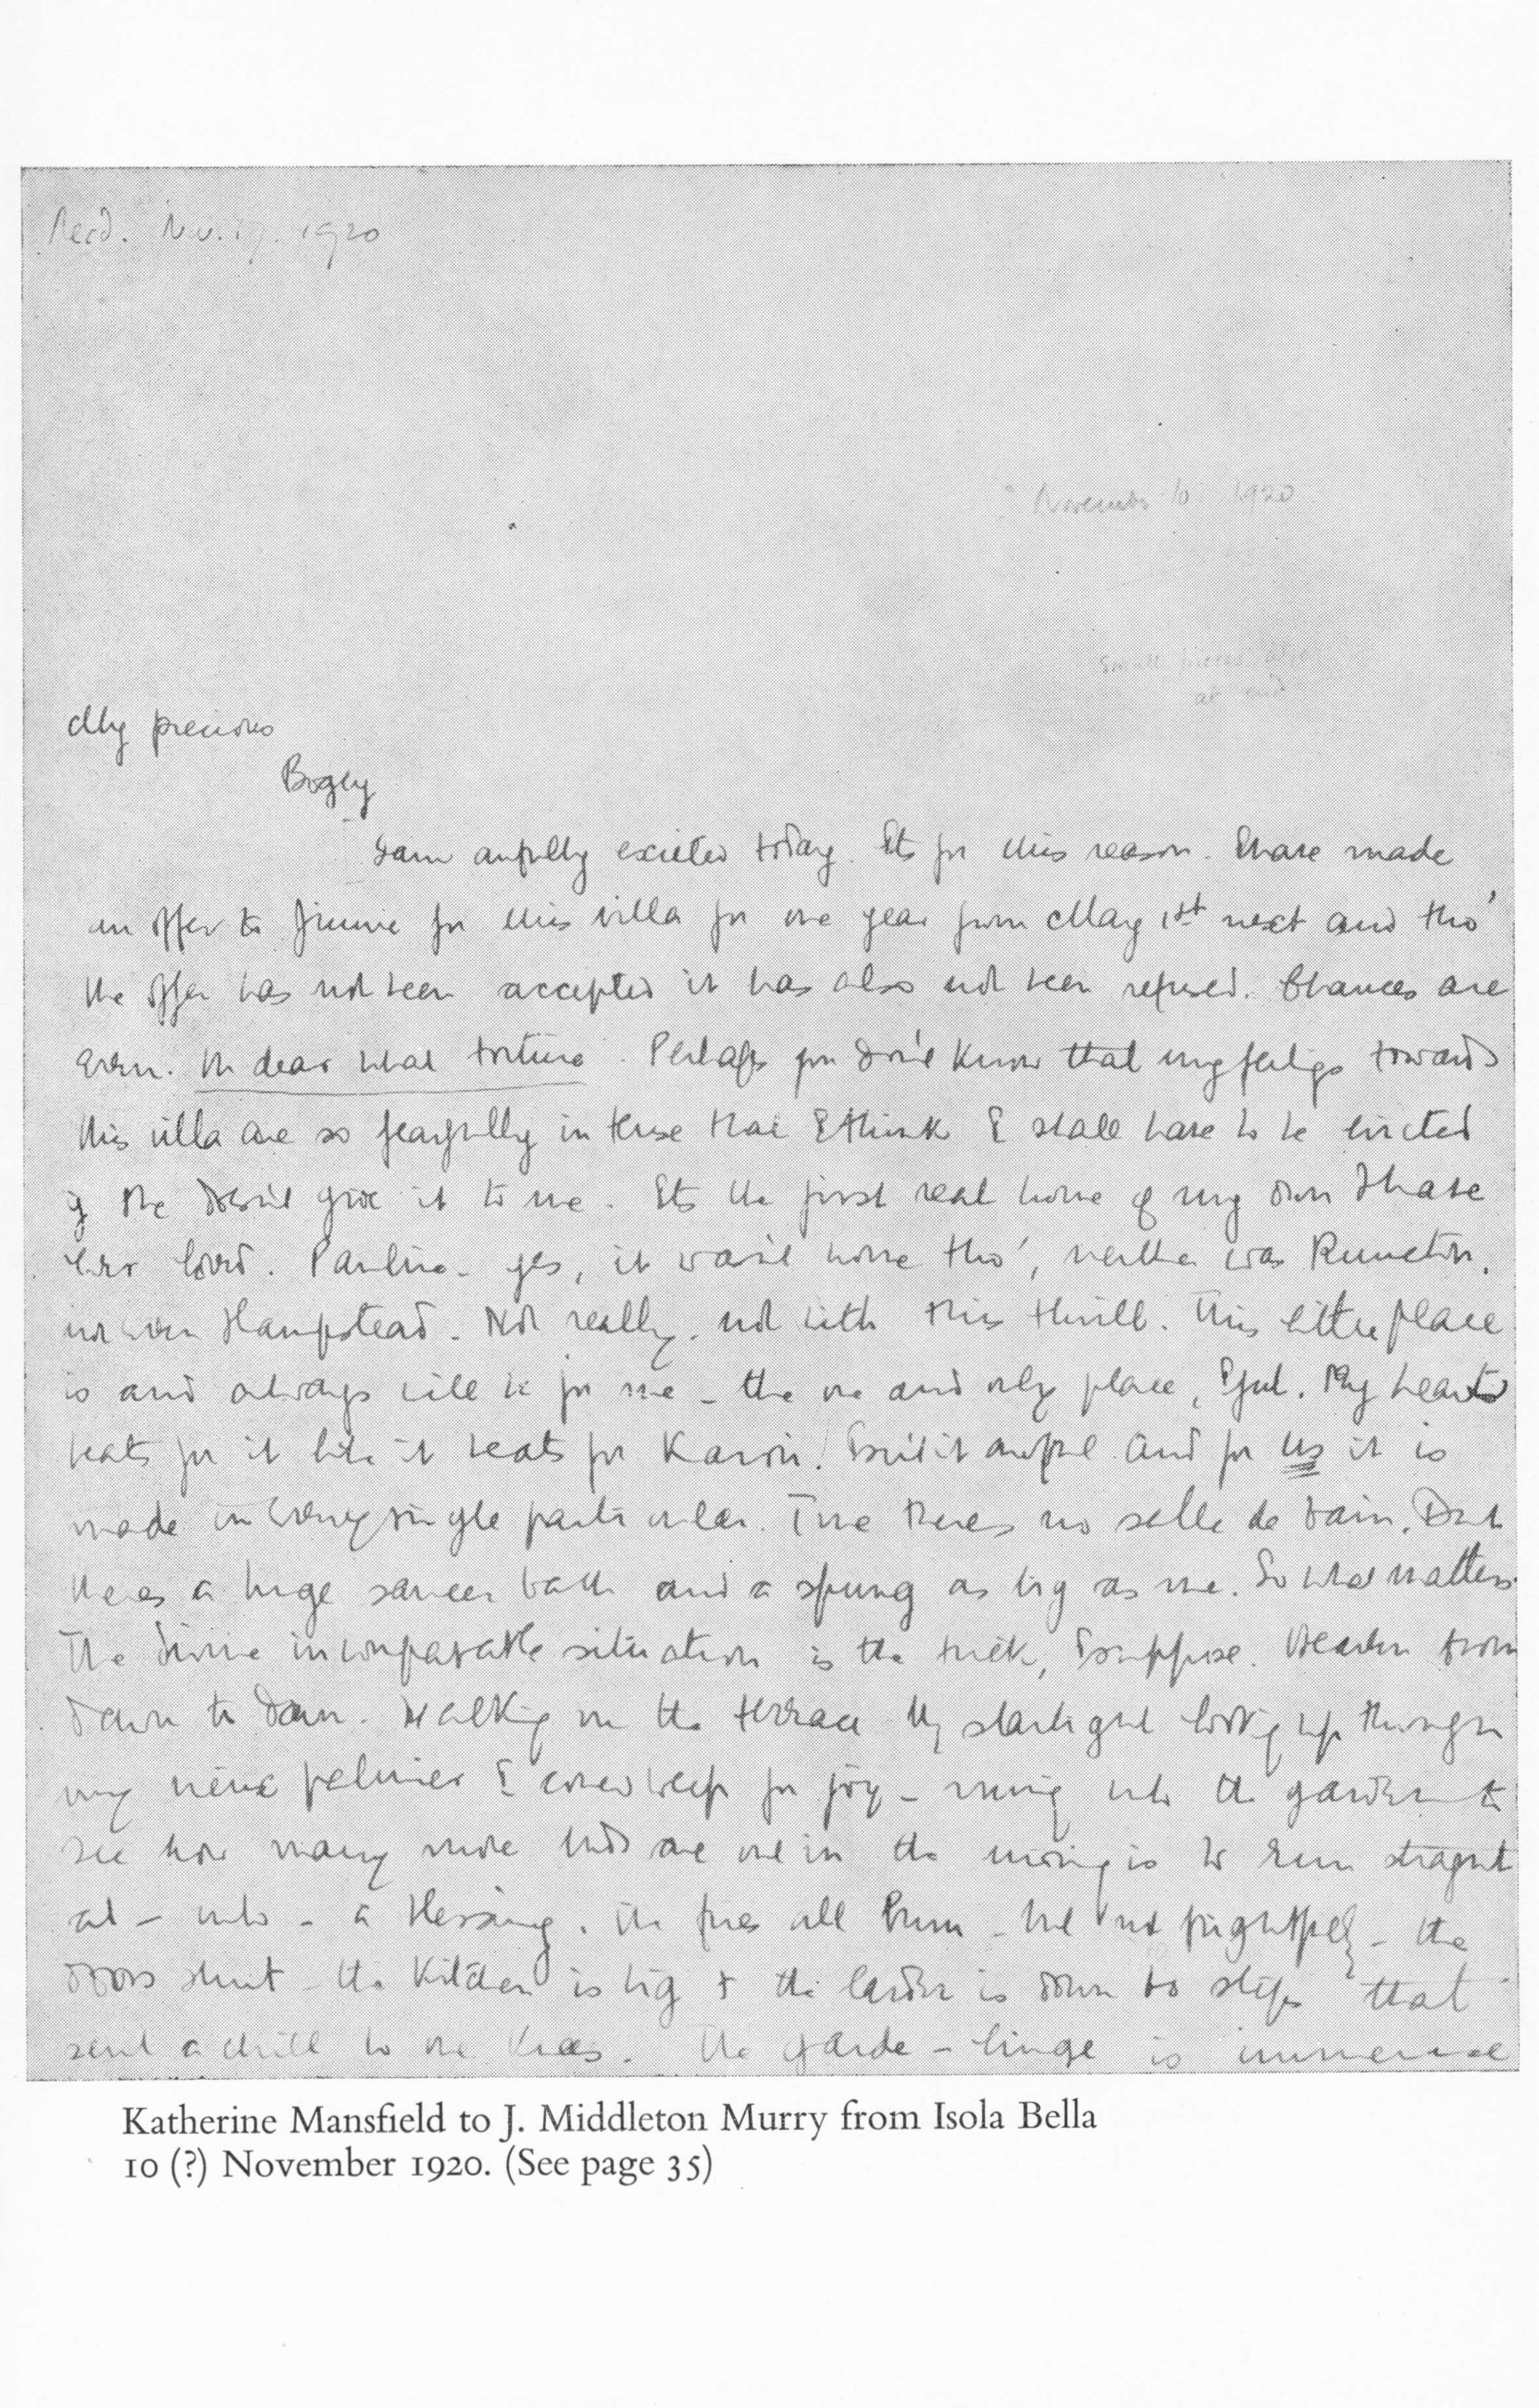 Recd. Nov. 17. 1920
November 10 1920
at end
My precious
Bogey
I am awfully excited today. Its for this reason. I have made
an offer to Jinnie for this villa for one year from May 1st next and tho'
the offer has not been accepted it has also not been refused. Chances are
even. Oh dear what torture. Perhaps you don't know that my feelings towards
this villa are so fearfully intense that I think I shall have to be evicted
if she doesn't give it to me. Its the first real home of my own I have
ever loved. Pauline - yes, it wasn't home tho', neither was Runcton,
not even Hampstead. Not really, not with this thrill. This little place
is and always will be for me - the one and only place, I feel. My heart
beats for it like it beats for Karori. Isn't it awful. And for us it is
made in every single particular. True theres no salle de bain. But
theres a huge saucer bath and a spung as big as me. So what matters.
The divine incomparable situation is the trick, I suppose. Heaven from
dawn to dawn. Walking on the terrace by starlight looking up through
my vieux palmier I could weep for joy - running into the garden to
see how many more buds are out in the morning is to run straight
at - into - a blessing. The fires all burn - but not frightfully - the
doors shut - the kitchen is big & the larder is down 10 steps that
send a chill to ones knees. The garde-linge is immense
Katherine Mansfield to J. Middleton Murry from Isola Bella
10 (?) November 1920. (See page 35)